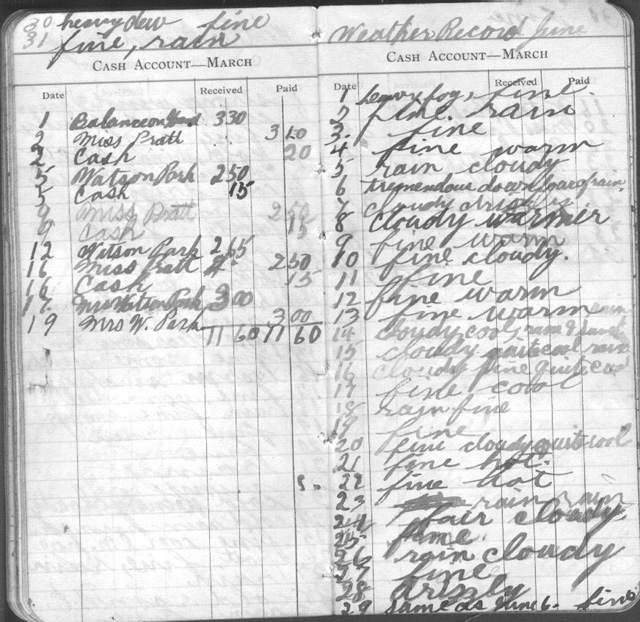 30 heavy dew fine
31 fine, rain
CASH ACCOUNT—MARCH
Date Received Paid
1 Balance on Hand 3 30
2 Miss Pratt 3 10
2 Cash 20
5 Watson Park 2 50
5 Cash 15
9 Miss Pratt 2 50
9 Cash 15
12 Watson Park 2 65
16 Miss Pratt 2 50
16 Cash 15
17. Mrs Watson Park 3 00
19 Mrs W. Park 3 00
11 60 11 60
Weather Record June
CASH ACCOUNT—MARCH
Date Received Paid
1 heavy fog, fine.
2 fine. rain
3. fine
4 fine warm
5 rain cloudy
6 tremendous down pour of rain
7 cloudy drizzly.
8 cloudy warmer
9 fine warm
10 fine cloudy.
11 fine
12 fine warm
13 fine warm
14 cloudy cool, rain
15 cloudy quite cool rain
16 cloudy fine quite cool
17 fine cool
18 rain fine
19 fine
20 fine cloudy quite cool
21 fine hot.
22 fine hot
23 rain rain
24 fair cloudy
25 fine
26 rain cloudy
27 fine
28 drizzly
29 same as June 6. fine